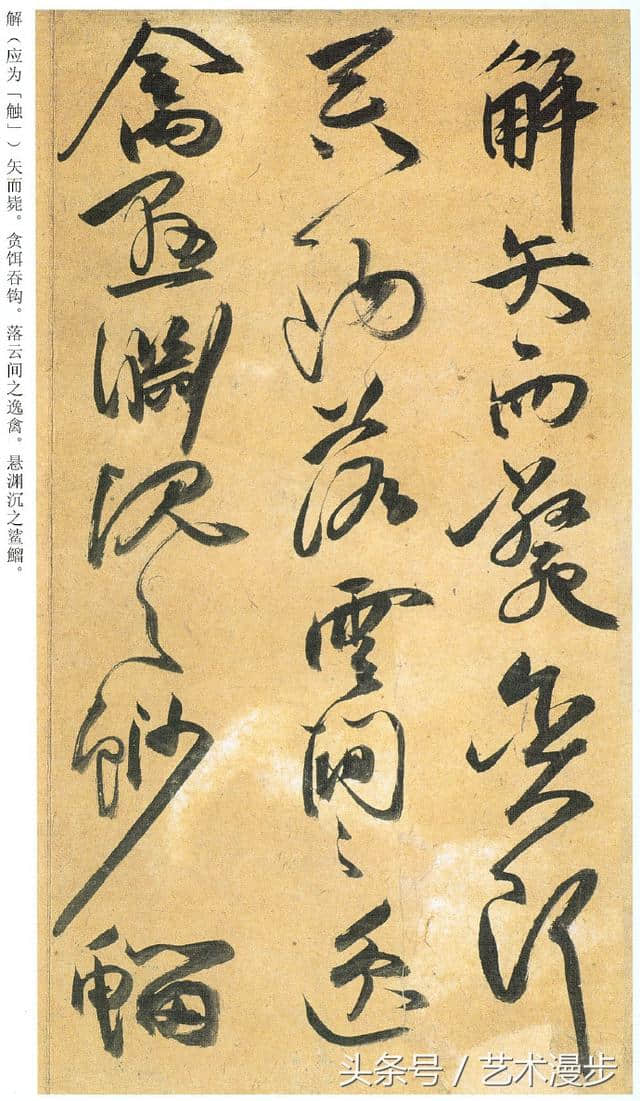 解矢而斃貪餌
吞鈎落雲間之逸
禽懸淵沉之魦鰡
解（应为「触」）矢而毙。贪饵吞钩。落云间之逸禽。悬渊沉之鲨鰡。
头条号 / 艺术漫步